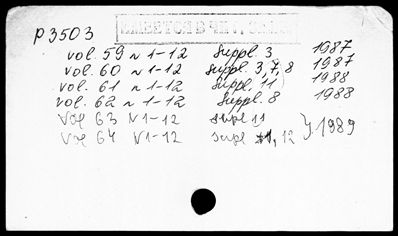 P3503
vol. 59 N 1-12 Suppl. 3 1987
vol. 60 N 1-12 Suppl. 3, 7, 8 1987
vol. 61 N 1-12 Suppl. 11 1988
vol. 62 N 1-12 Suppl. 8 1988
Vol 63 N 1-12 supl 11
Vol 64 N 1-12 supl 12 } 1989